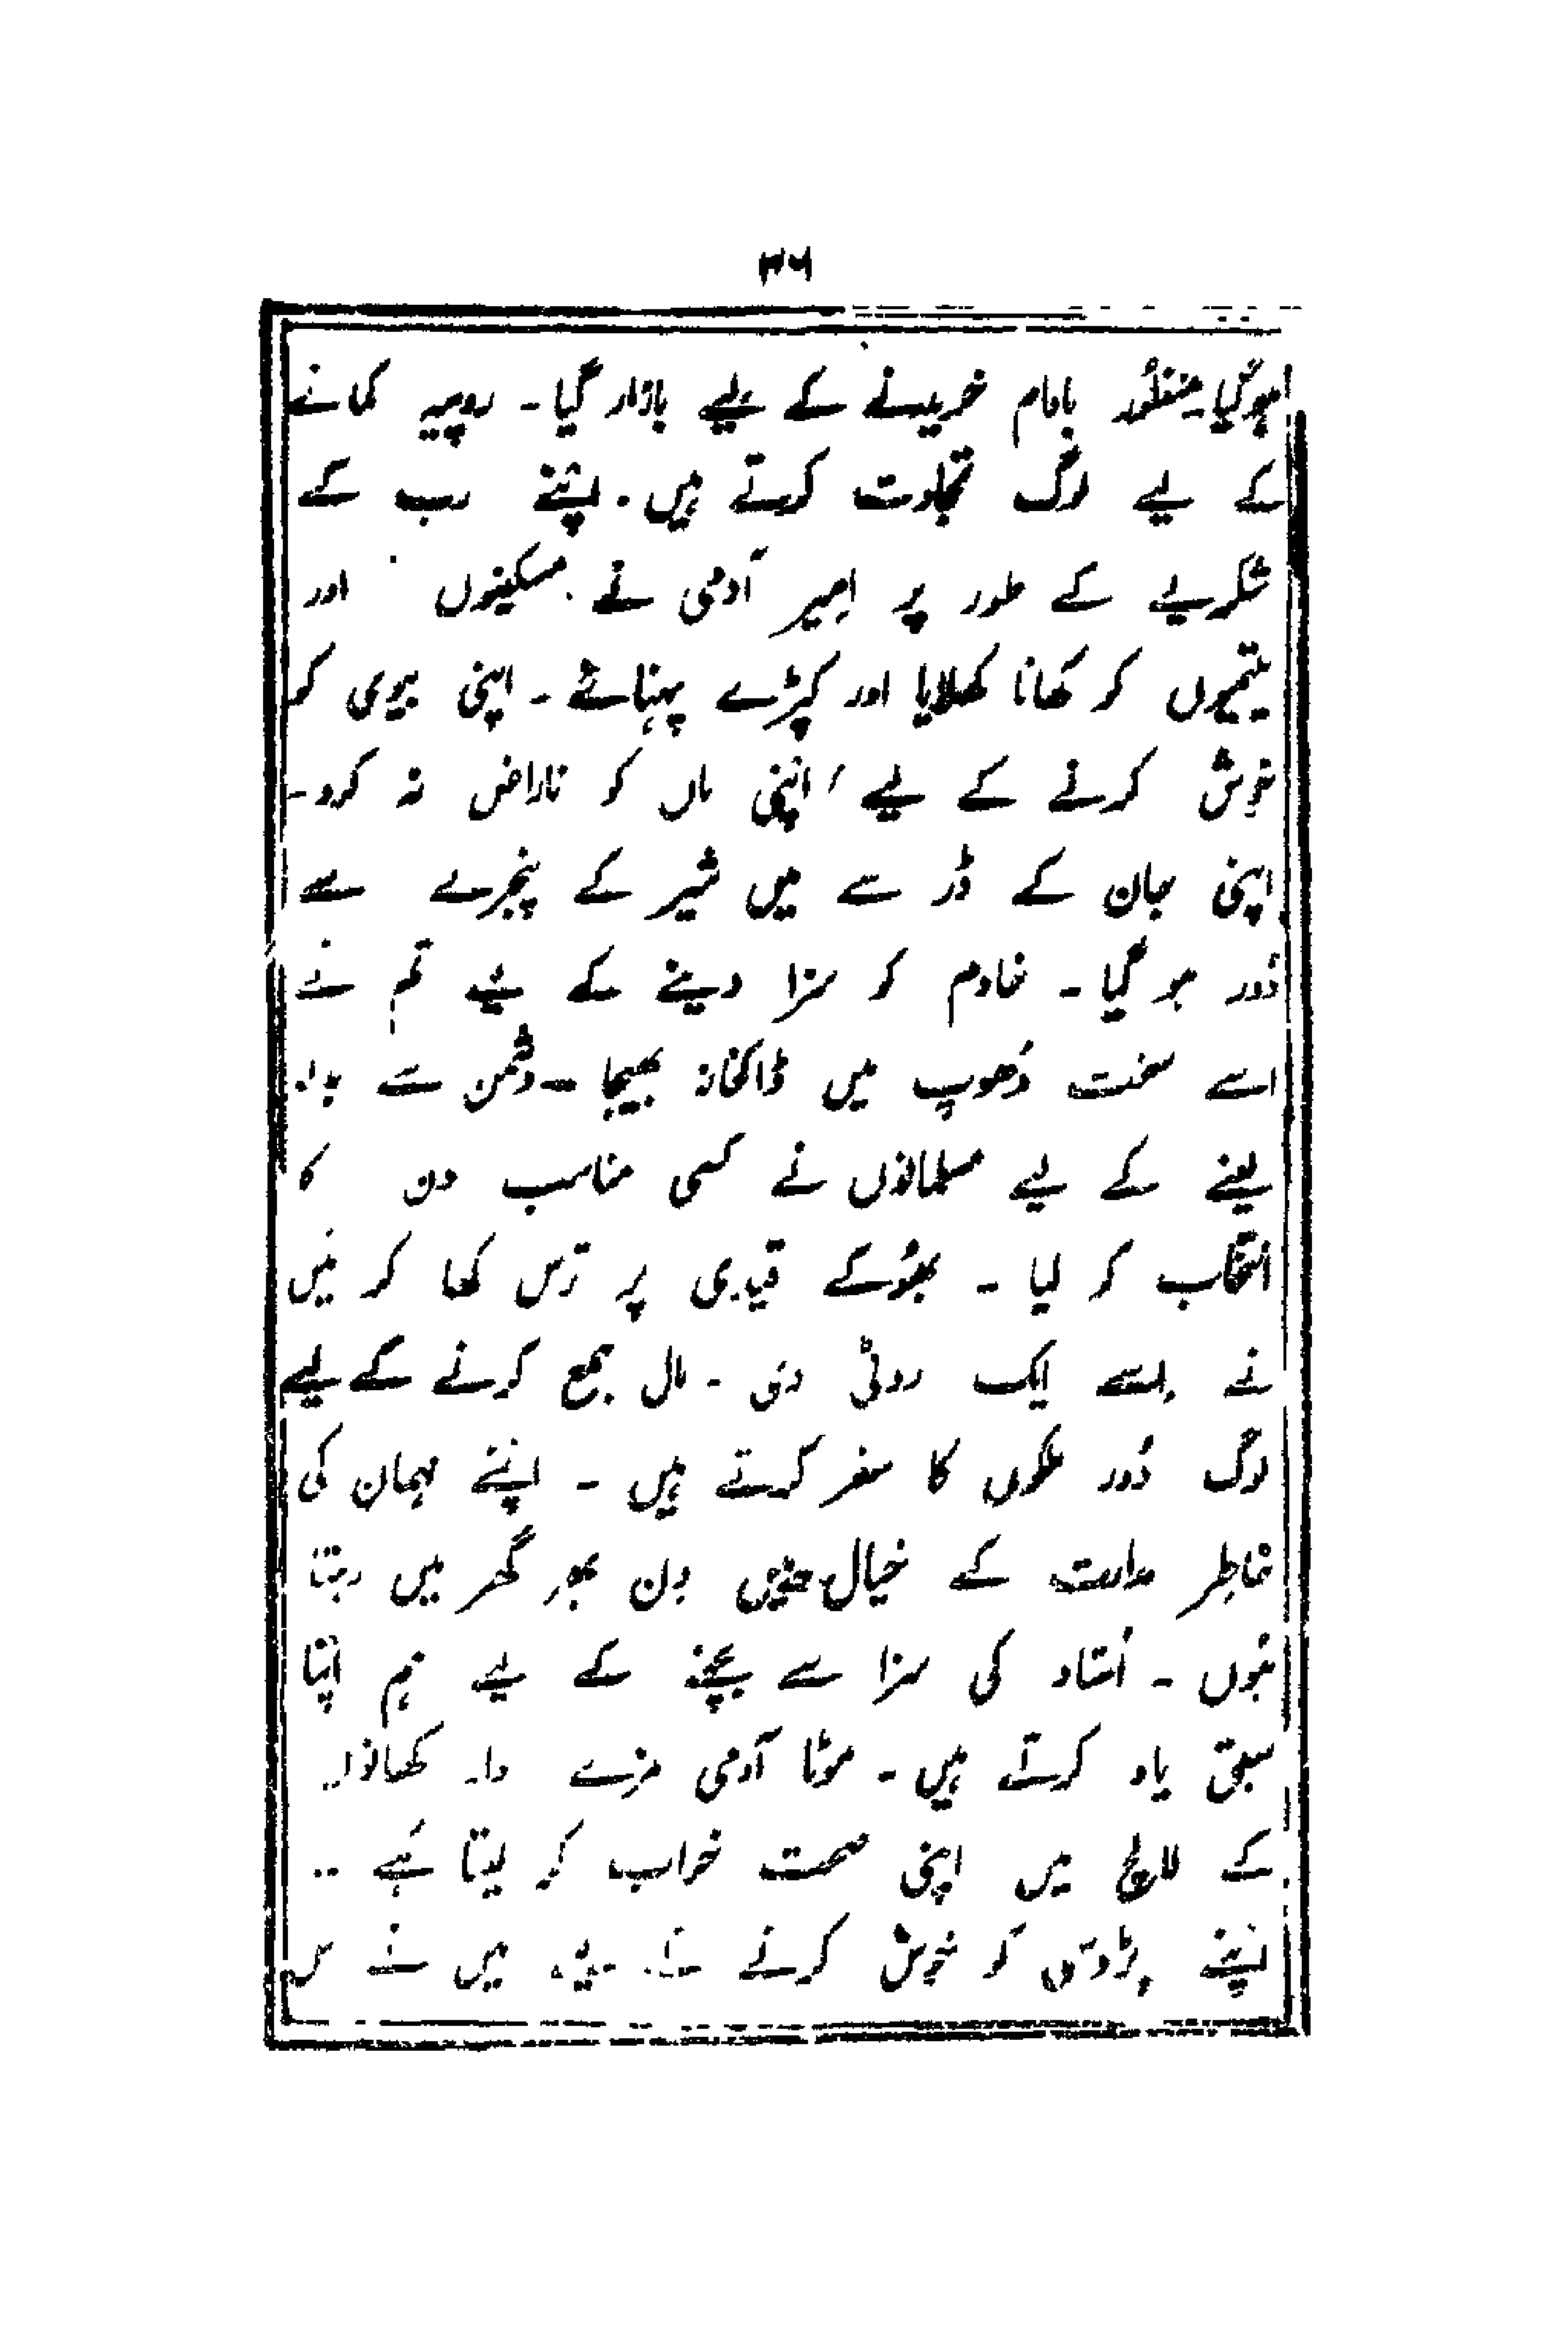 ۳۶
ہوگیا۔ منظُور بادام خریدنے کے لیے بازار گیا۔ روپیہ کمانے
کے لیے لوگ تجارت کرتے ہیں۔ اپنے رب کے
شکریے کے طور پر امیر آدمی نے مسکینوں اور
یتیموں کو کھانا کھلایا اور کپڑے پہنائے۔ اپنی بیوی کو
خوش کرنے کے لیے اپنی ماں کو ناراض نہ کرو۔
اپنی جان کے ڈر سے میں شیر کے پنجرے سے
دُور ہو گیا۔ خادم کو سزا دینے کے لیے تم نے
اسے سخت دُھوپ میں ڈاکخانہ بھیجا۔ دشمن سے بدلہ
لینے کے لیے مسلمانوں نے کسی مناسب دن کا
انتخاب کر لیا۔ بھوُکے قیدی پر ترس کھا کر مَیں
نے اِسے ایک روٹی دی۔ مال جمع کرنے کے لیے
لوگ دُور ملکوں کا سفر کرتے ہیں۔ اپنے مہمان کی
خاطِر مدارت کے خیال میں دِن بھر گھر میں رہتا
ہُوں۔ اُستاد کی سزا سے بچنے کے لیے ہم اپنا
سبق یاد کرتے ہیں۔ موٹا آدمی مزے دار کھانوں
کے لالچ میں اپنی صحت خراب کر لیتا ہَے۔
اپنے پڑوسی کو خوش کرنے کے لیے میں نے